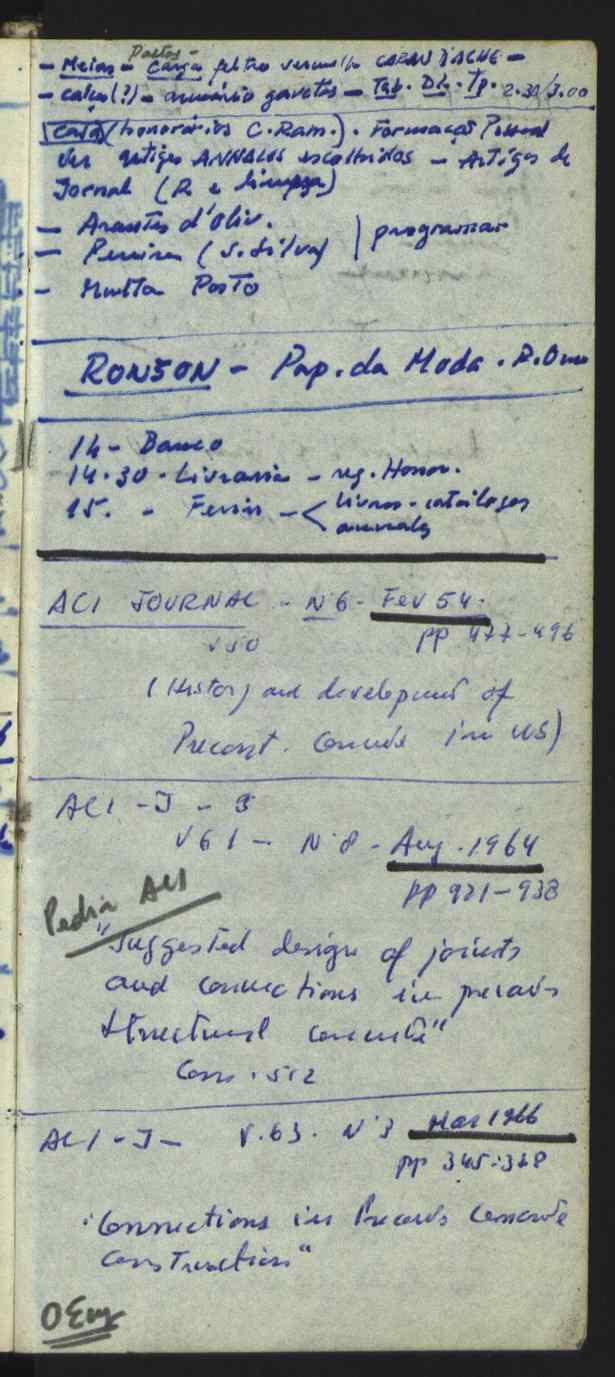 Pastas -
- Meias - Carga feltro vermelho CARAN D'ACHE -
- calça(?) - armário gavetas - Tab. Db. Tp. 2.30/3.00
Casa (honorários C. Ram.). Formação Pessoal
ver artigos ANNALES escolhidos - Artigos de
Jornal (R e limpeza)
- Arantes d'Oliv.
- Pereira (S. Silva) | programar
- Multa Posto
RONSON - Pap. da Moda. R. Ouro
14 - Banco
14.30 - Livraria - reg. Honor.
15. - Ferin - < livros - catálogos
annales
ACI JOURNAL - Nº 6 - Fev 54.
V 50 pp 477-496
(History and development of
Precast. Concrete in US)
ACI - J - 9
V 61 - Nº 8 - Aug. 1964
pp 921-938
Pedir ACI
"Suggested design of joints
and connections in precast
structural concrete"
Com. 512
ACI - J - V. 63. Nº 3 Mar 1966
pp 345-368
"Connections in Precast Concrete
Construction"